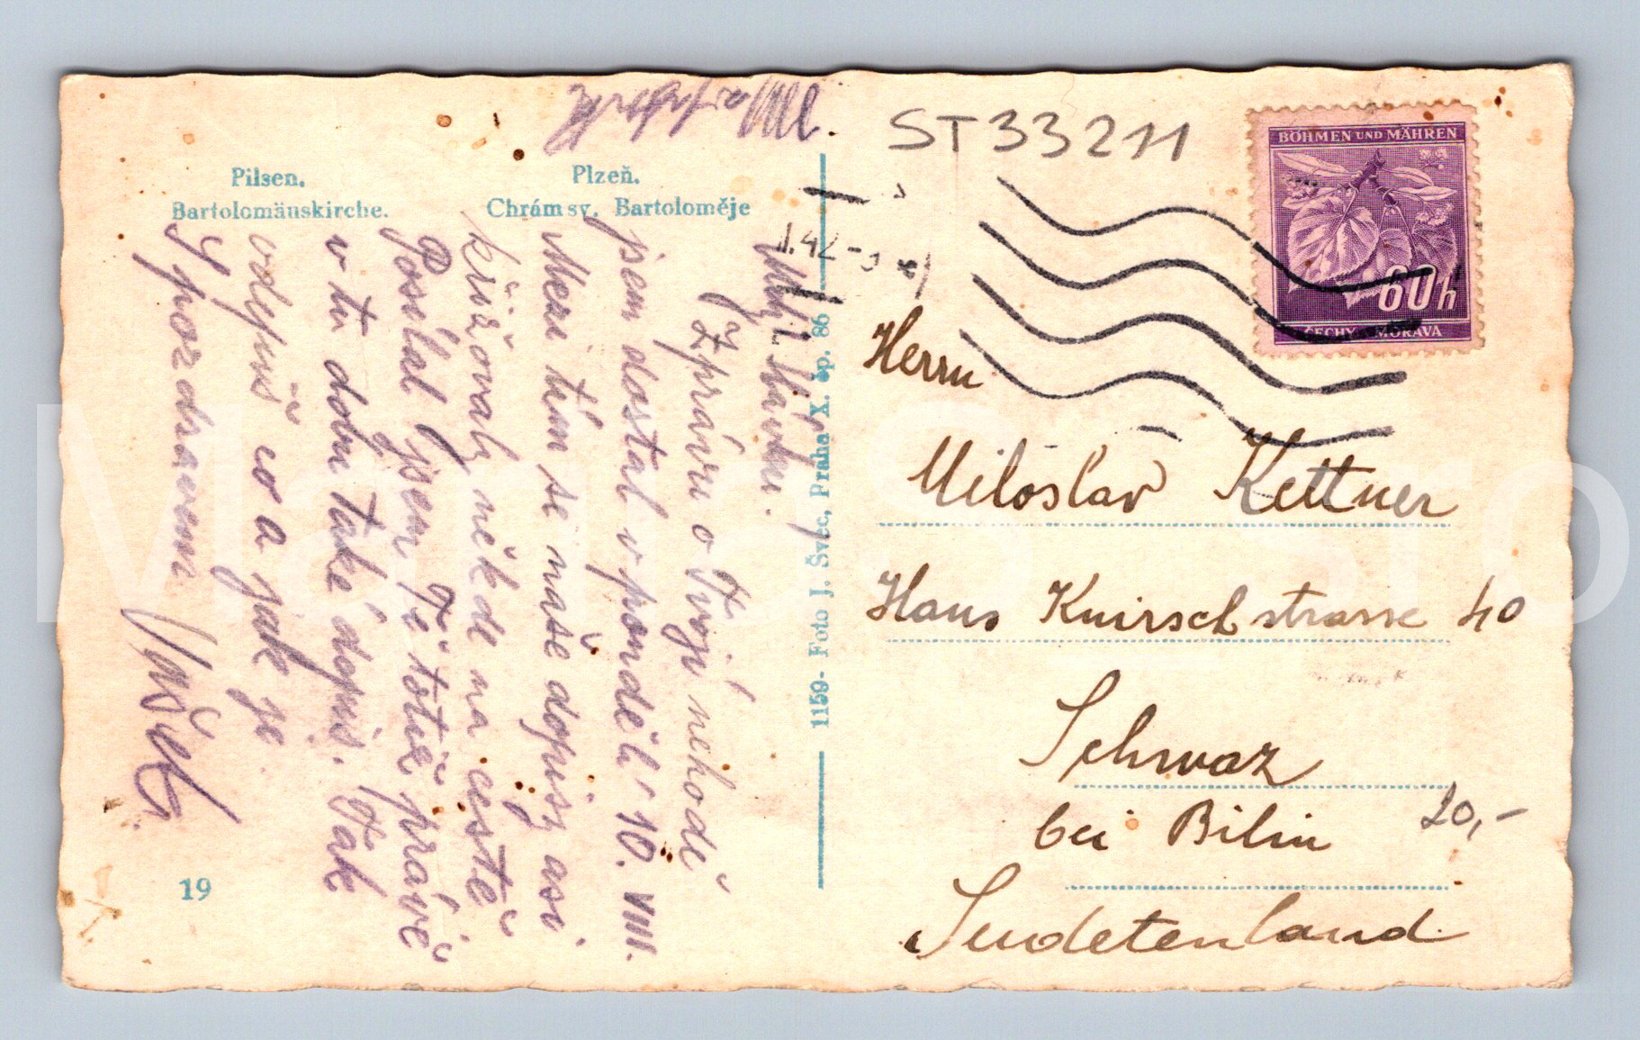 Pilsen.
Bartolomänskirche.
Plzeň.
Chrám sv. Bartoloměje
Milý Slávku.
Zprávu o Tvojí nehodě
jsem dostal v pondělí 10. VIII.
Mezi tím se naše dopisy asi
křižovaly někde na cestě
Posílal jsem Ti totiž právě
v tu dobu také dopis. Tak
odepiš co a jak je
S pozdravem
19
1159 - Foto J. Švec, Praha X. čp. 86
ST33211
BÖHMEN UND MÄHREN
60h
ČECHY A MORAVA
42
Herrn
Miloslav Kettner
Hans Knirschstrasse 40
Schwaz
bei Bilin
20,-
Sudetenland